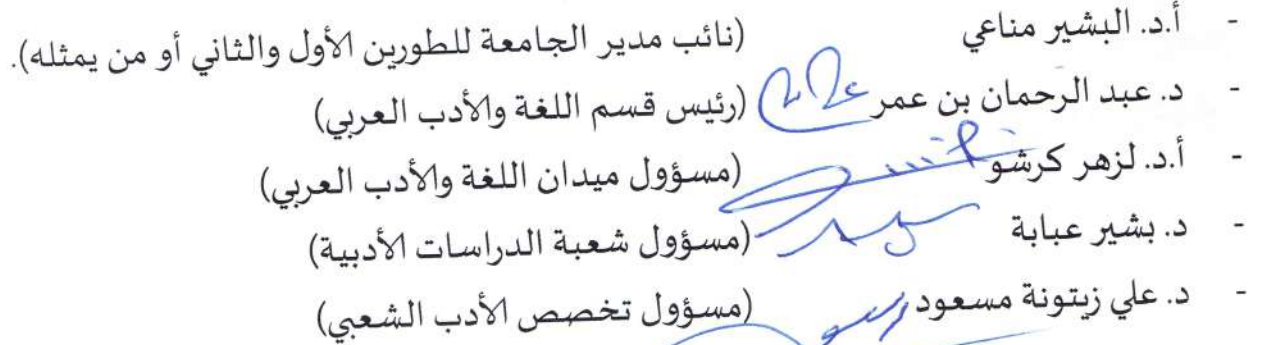 - أ.د. البشير مناعي (نائب مدير الجامعة للطورين الأول والثاني أو من يمثله).
- د. عبد الرحمان بن عمر (رئيس قسم اللغة والأدب العربي)
- أ.د. لزهر كرشو (مسؤول ميدان اللغة والأدب العربي)
- د. بشير عبابة (مسؤول شعبة الدراسات الأدبية)
- د. علي زيتونة مسعود (مسؤول تخصص الأدب الشعبي)